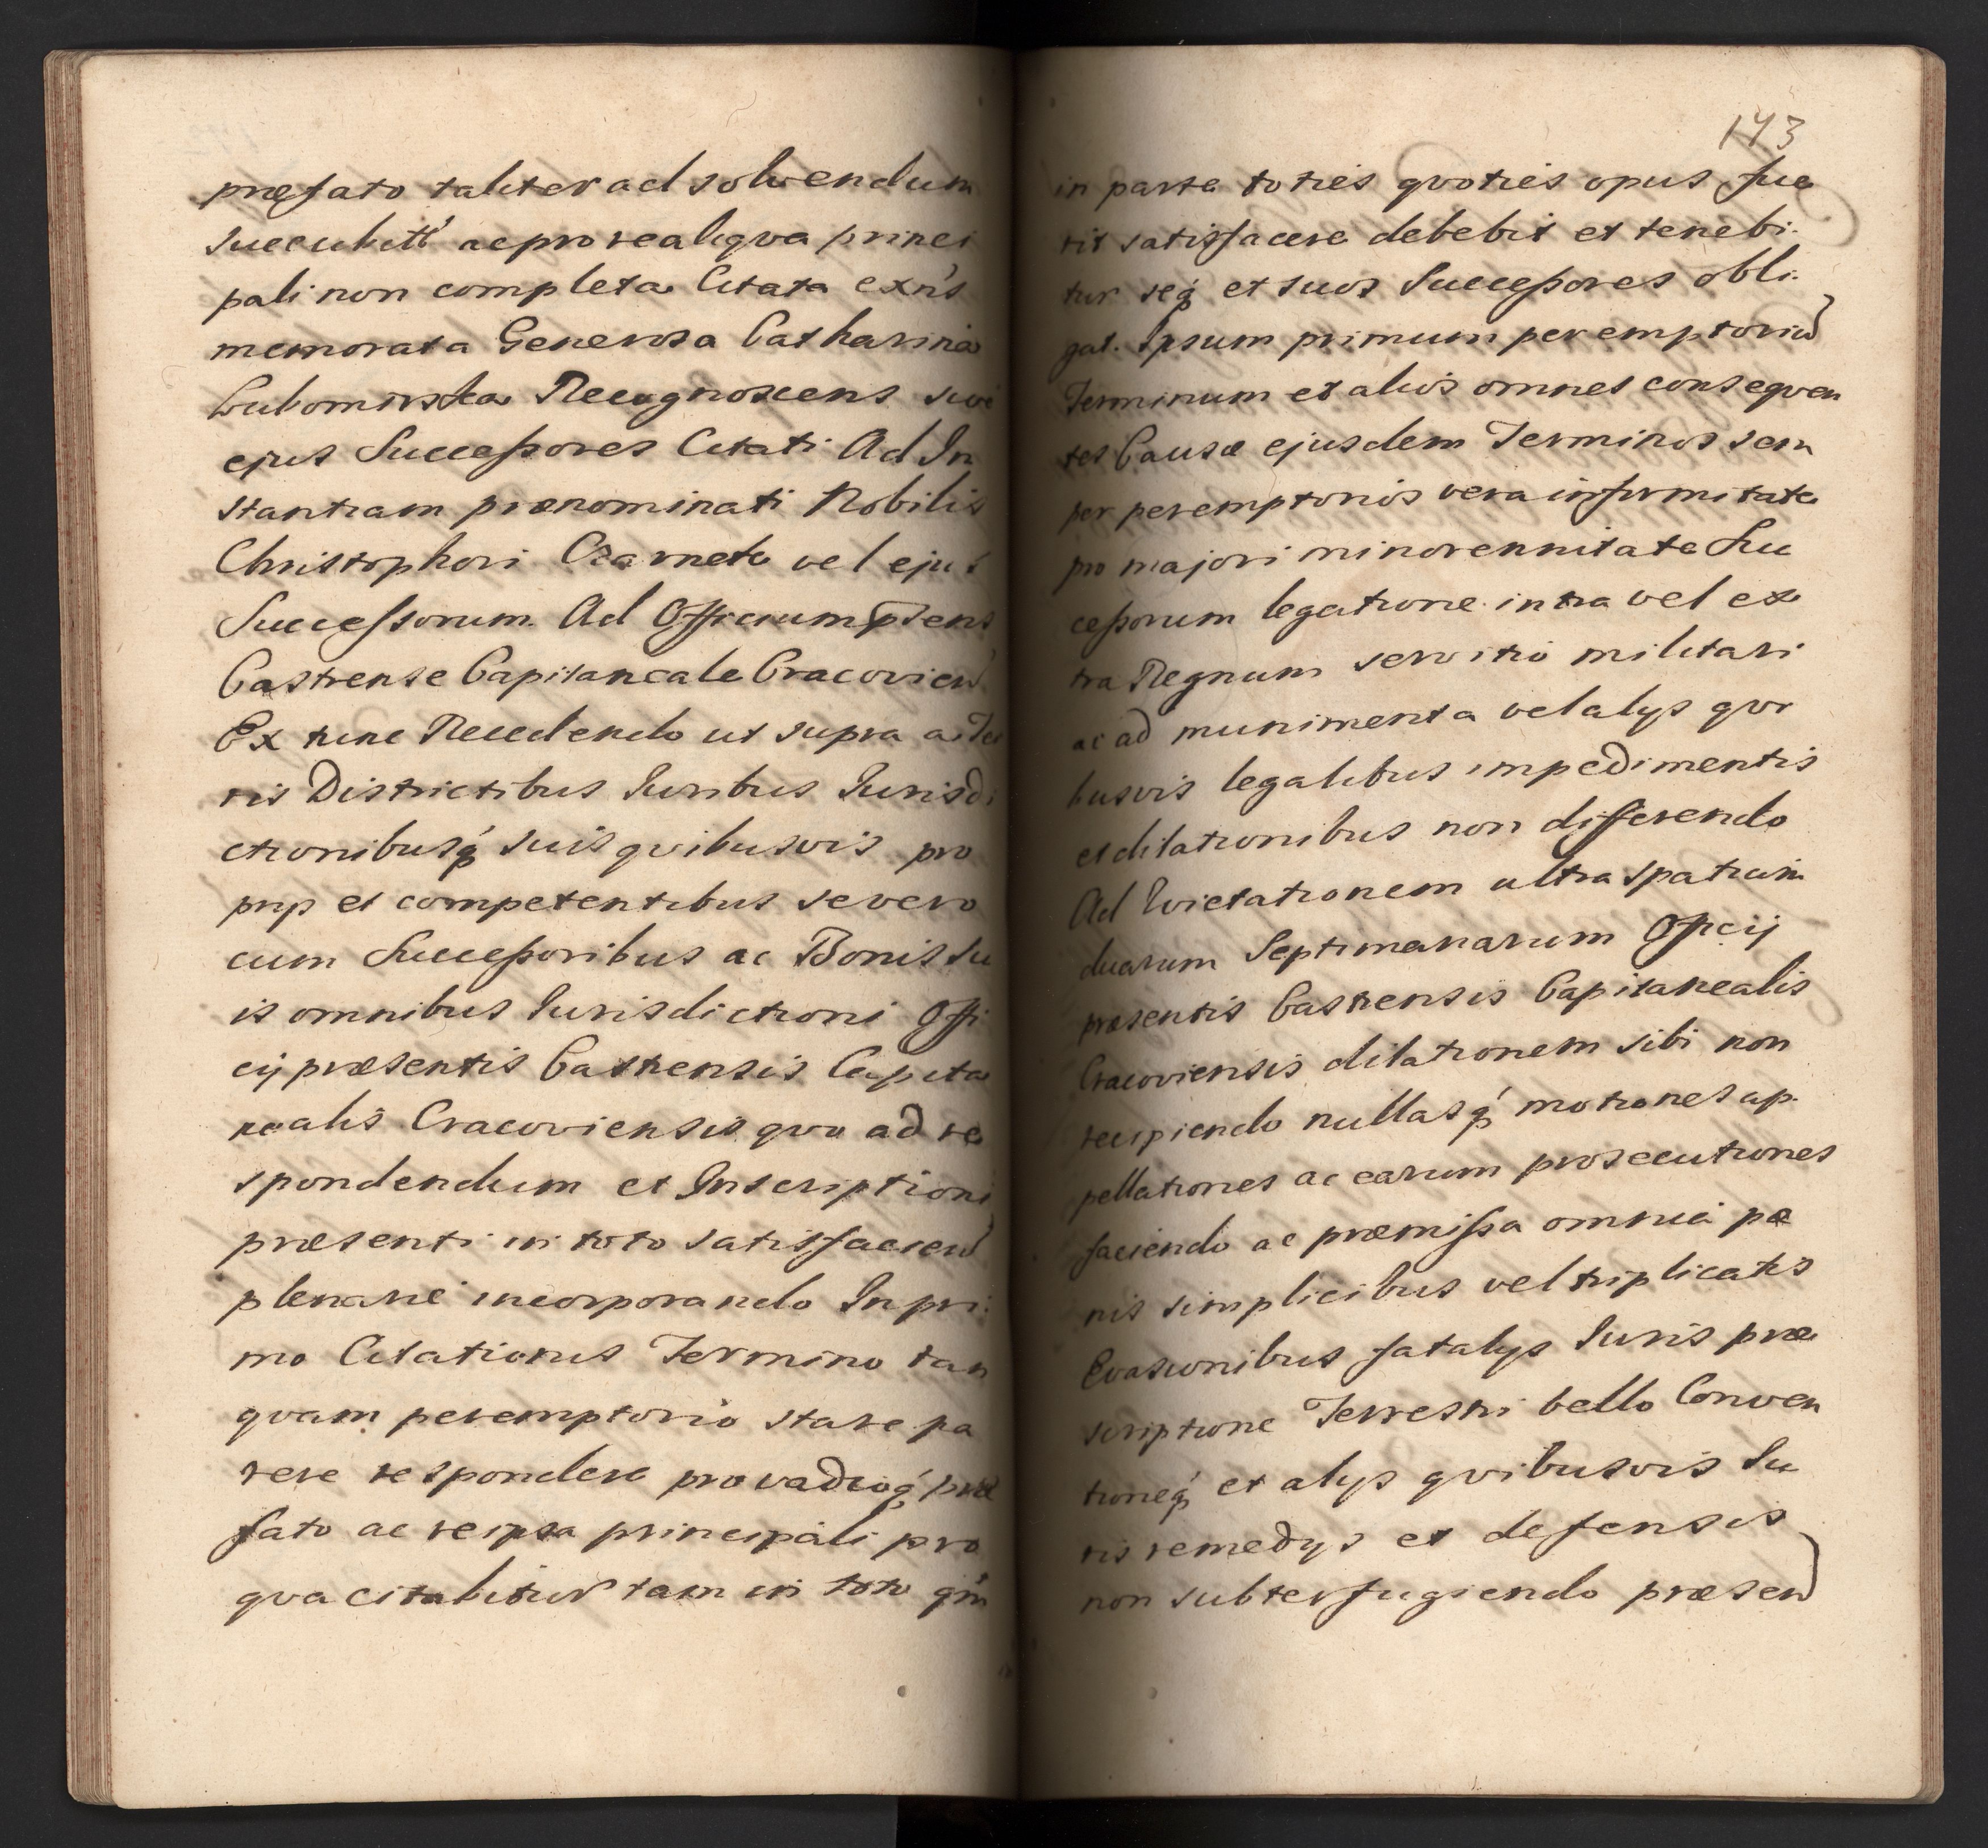 præfato taliter ad solvendum
succubitt' ac pro re aliqva princi
pali non completa Citata exn's
memorata Generosa Catharina
Lubomirska Recognoscens sivè
ejus Successores Citati Ad In
stantiam prænominati Nobilis
Christophori Czarnek vel ejus
Successorum. Ad Officium Præns
Castrense Capitaneale Cracovien
Ex tunc Recedendo ut supra a Ter
ris Districtibus Iuribus Iurisdi
ctionibusq́ suis qvibusvis pro
prijs et competentibus se vero
cum Successoribus ac Bonis Su
is omnibus Iurisdictioni Offi
cij præsentis Castrensis Capita
nealis Cracoviensis qvo ad re
spondendum et Inscriptioni
præsenti in toto satisfacien
plenarie incorporando In pri
mo Citationis Termino tan
qvam peremptorio stare pa
rere respondere pro vadioq́ præ
fato ac re ipsa principali pro
qva citabitur tam in toto qm̃
143
in parte toties qvoties opus fue
rit satisfacere debebit et tenebi-
tur seq́ et suos Successores obli-
gat. Ipsum primum peremptoriu
Terminum et alios omnes conseqven
tes Causæ ejusdem Terminos sem
per peremptorios vera infirmitate
pro majori minorennitate Suc
cessorum legatione intra vel ex
tra Regnum servitio militari
ac ad munimenta vel alijs qvi
busvis legalibus impedimentis
et dilationibus non differendo
Ad Evictationem ultra spatium
duarum Septimanarum Offcij
præsentis Castrensis Capitanealis
Cracoviensis dilationem sibi non
recipiendo nullasq́ motiones ap-
pellationes ac earum prosecutiones
faciendo ac præmissa omnia pæ
nis simplicibus vel triplicatis
Evasionibus fatalijs Iuris præ
scriptione Terrestri bello Conven
tioneq́ et alijs qvibusvis Iu
ris remedijs et defensis
non subterfugiendo præsen